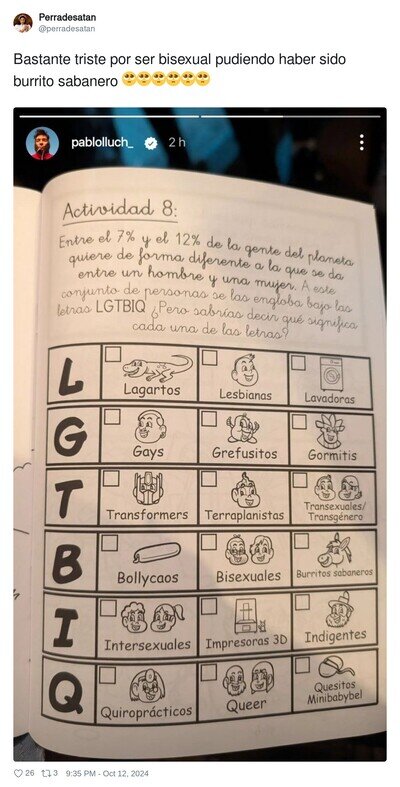 Perradesatan
@perradesatan
Bastante triste por ser bisexual pudiendo haber sido
burrito sabanero 🥺🥺🥺🥺🥺🥺
pablolluch_ 2 h
Actividad 8:
Entre el 7% y el 12% de la gente del planeta
quiere de forma diferente a la que se da
entre un hombre y una mujer. A este
conjunto de personas se las engloba bajo las
letras LGTBIQ ¿Pero sabrías decir qué significa
cada una de las letras?
L
Lagartos
Lesbianas
Lavadoras
G
Gays
Grefusitos
Gormitis
T
Transformers
Terraplanistas
Transexuales/
Transgénero
B
Bollycaos
Bisexuales
Burritos sabaneros
I
Intersexuales
Impresoras 3D
Indigentes
Q
Quiroprácticos
Queer
Quesitos
Minibabybel
26 3 9:35 PM - Oct 12, 2024